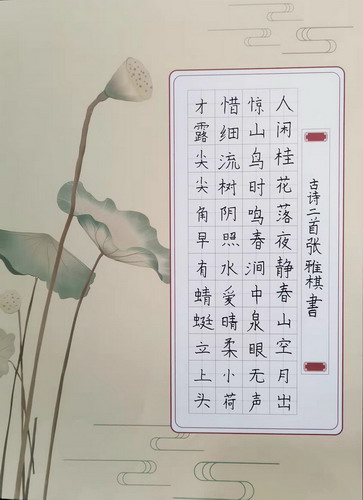 人闲桂花落夜静春山空月出
惊山鸟时鸣春涧中泉眼无声
惜细流树阴照水爱晴柔小荷
才露尖尖角早有蜻蜓立上头
古诗二首张雅棋書